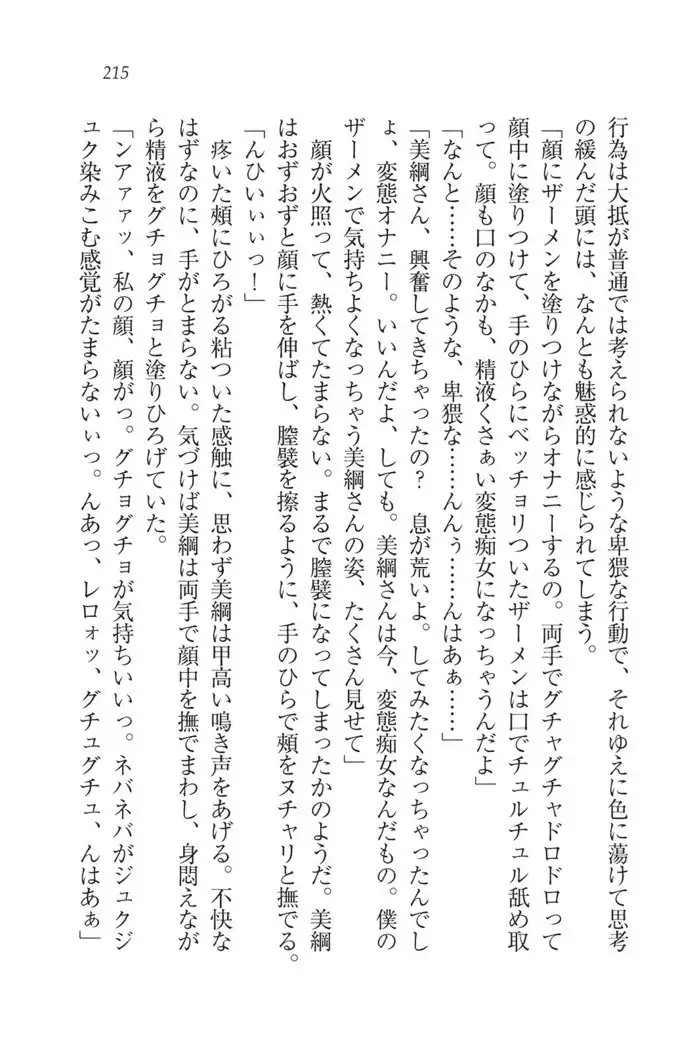 215
行為は大抵が普通では考えられないような卑猥な行動で、それゆえに色に蕩けて思考
の緩んだ頭には、なんとも魅惑的に感じられてしまう。
「顔にザーメンを塗りつけながらオナニーするの。両手でグチャグチャドロドロって
顔中に塗りつけて、手のひらにベッチョリついたザーメンは口でチュルチュル舐め取
って。顔も口のなかも、精液くさぁい変態痴女になっちゃうんだよ」
「なんと……そのような、卑猥な……んんぅ……んはあぁ……」
「美綱さん、興奮してきちゃったの？　息が荒いよ。してみたくなっちゃったんでし
ょ、変態オナニー。いいんだよ、しても。美綱さんは今、変態痴女なんだもの。僕の
ザーメンで気持ちよくなっちゃう美綱さんの姿、たくさん見せて」
顔が火照って、熱くてたまらない。まるで膣襞になってしまったかのようだ。美綱
はおずおずと顔に手を伸ばし、膣襞を擦るように、手のひらで頬をヌチャリと撫でる。
「んひいぃぃっ！」
疼いた頬にひろがる粘ついた感触に、思わず美綱は甲高い鳴き声をあげる。不快な
はずなのに、手がとまらない。気づけば美綱は両手で顔中を撫でまわし、身悶えなが
ら精液をグチョグチョと塗りひろげていた。
「ンアァァッ、私の顔、顔がっ。グチョグチョが気持ちいいっ。ネバネバがジュクジ
ュク染みこむ感覚がたまらないぃっ。んあっ、レロォッ、グチュグチュ、んはあぁ」